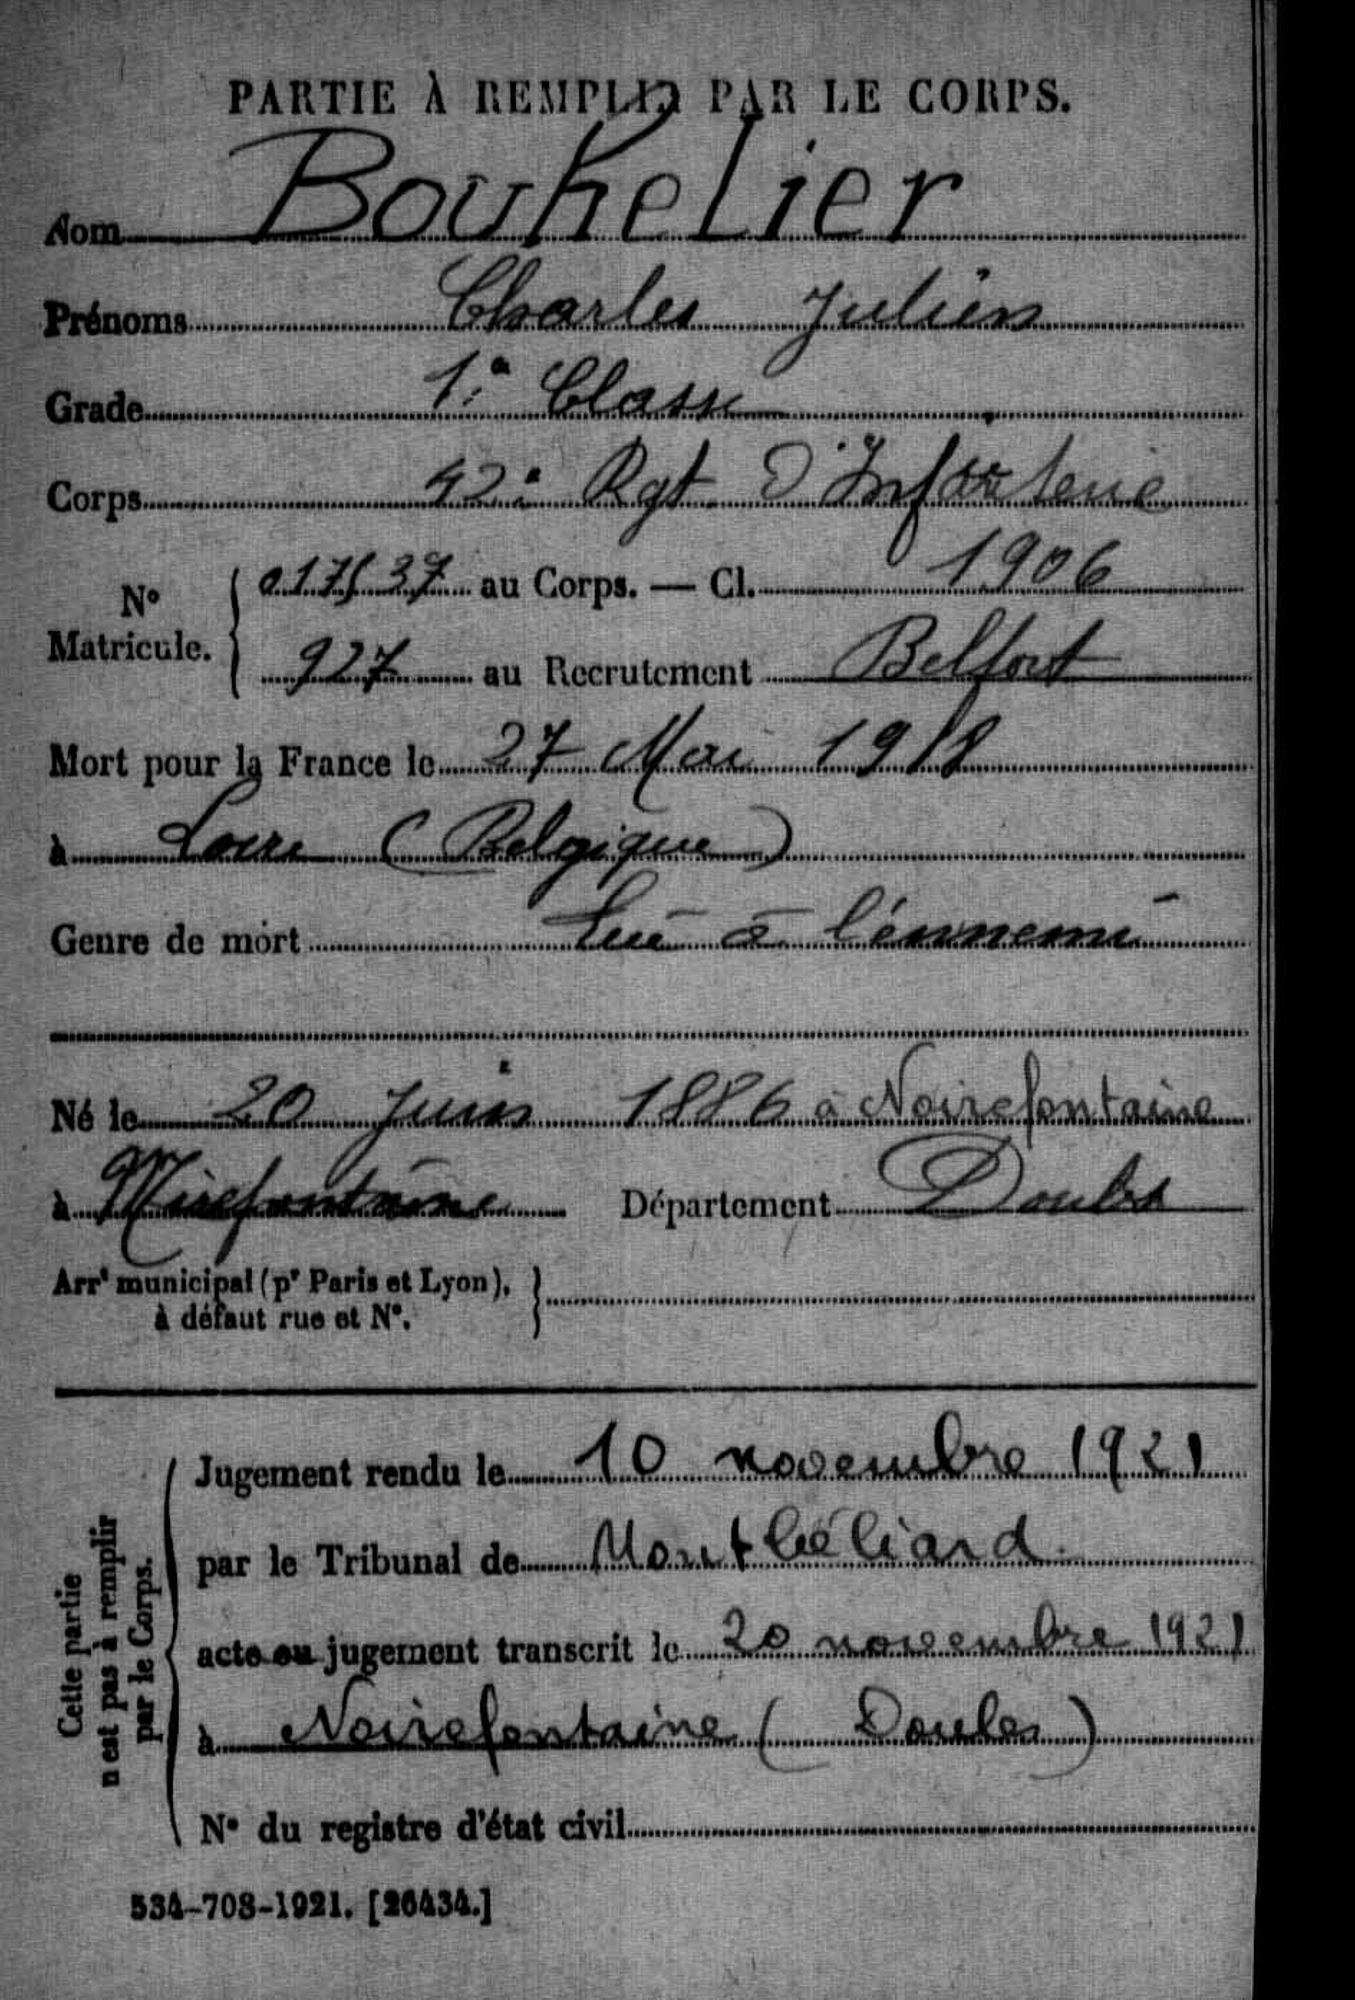 PARTIE À REMPLIR PAR LE CORPS.
Nom Bouhelier
Prénoms Charles Julien
Grade 1e Classe
Corps 42e Rgt D'Infanterie
N° Matricule. 017537 au Corps. — Cl. 1906
927 au Recrutement Belfort
Mort pour la France le 27 Mai 1918
à Locre (Belgique)
Genre de mort Tué à l'ennemi
Né le 20 Juin 1886 à Noirefontaine
à Mirefontaine Département Doubs
Arrt municipal (pr Paris et Lyon),
à défaut rue et N°.
Cette partie
n'est pas à remplir
par le Corps.
Jugement rendu le 10 novembre 1921
par le Tribunal de Montbéliard.
acte ou jugement transcrit le 20 novembre 1921
à Noirefontaine (Doubs)
N° du registre d'état civil
534-708-1921. [26434.]